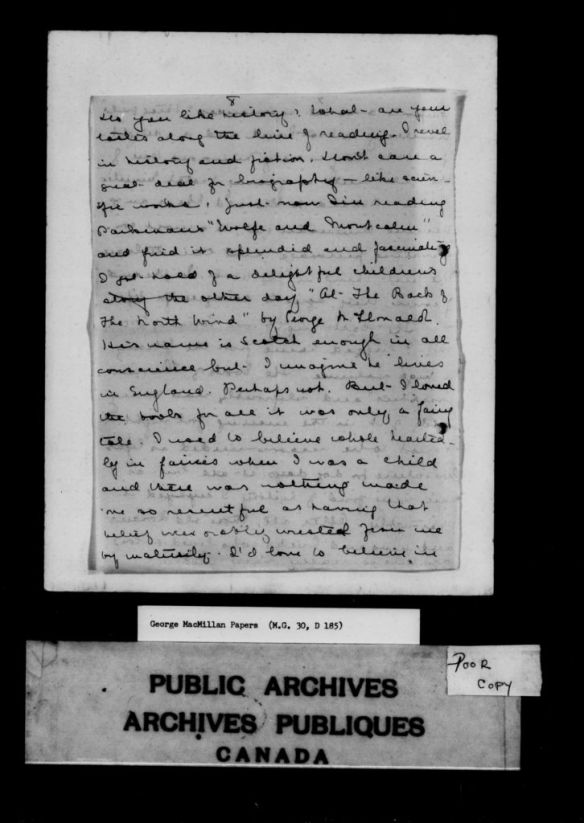 8
Do you like history? What are your
tastes along the line of reading. I revel
in history and fiction. Don't care a
great deal for biography – like scien-
tific works. Just now I'm reading
Parkman's "Wolfe and Montcalm"
and find it splendid and fascinating
I got hold of a delightful children's
story the other day "At The Back of
The North Wind" by George McDonald.
His name is Scotch enough in all
conscience but I imagine he lives
in England. Perhaps not. But I loved
the book for all it was only a fairy
tale. I used to believe whole hearted-
ly in fairies when I was a child
and there was nothing made
me so resentful as having that
belief inexorably wrested from me
by maturity. I'd love to believe in
George MacMillan Papers (M.G. 30, D 185)
POOR
COPY
PUBLIC ARCHIVES
ARCHIVES PUBLIQUES
CANADA